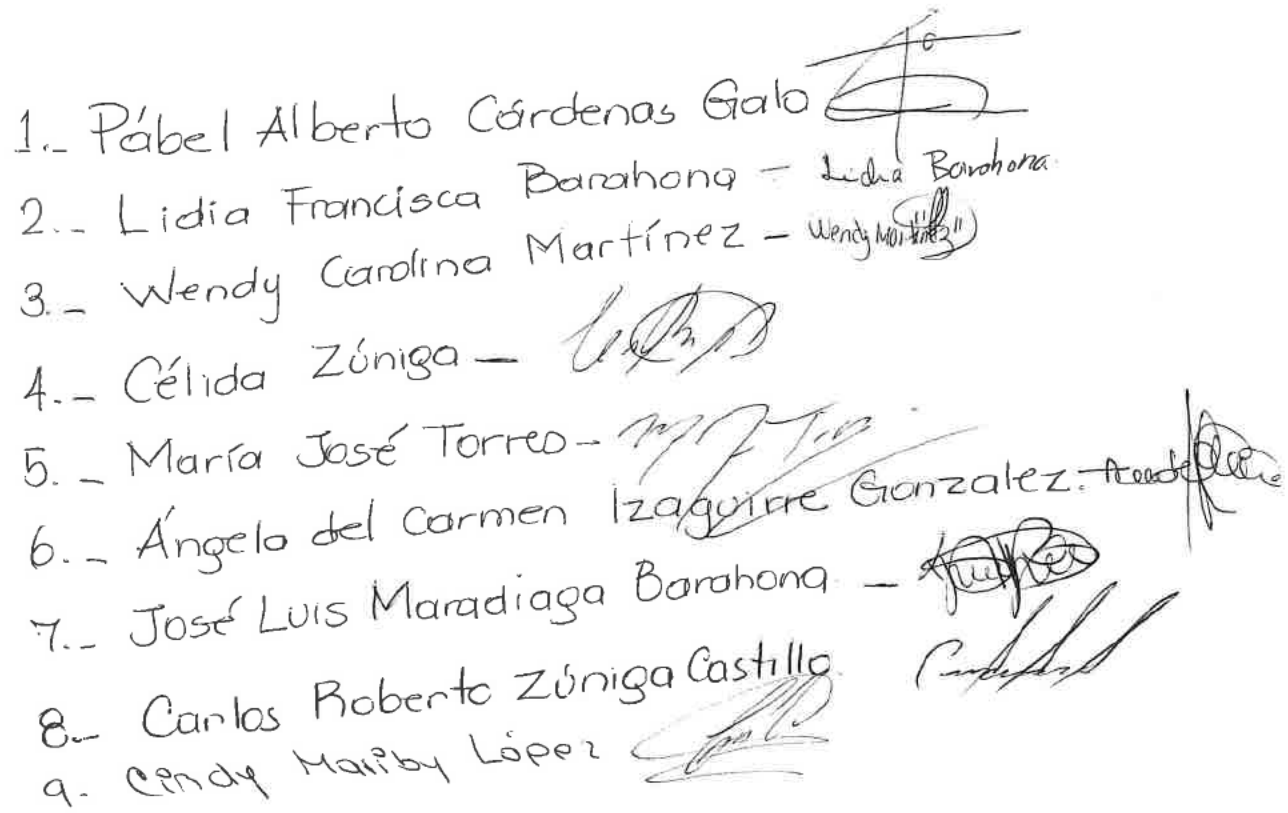 1.- Pábel Alberto Cárdenas Galo
2.- Lidia Francisca Barahona - Lidia Barahona
3.- Wendy Carolina Martínez - Wendy Martínez
4.- Célida Zúniga -
5.- María José Torres -
6.- Ángela del Carmen Izaguirre Gonzalez.-
7.- José Luis Maradiaga Barahona -
8.- Carlos Roberto Zúniga Castillo
9.- Cindy Mariby López